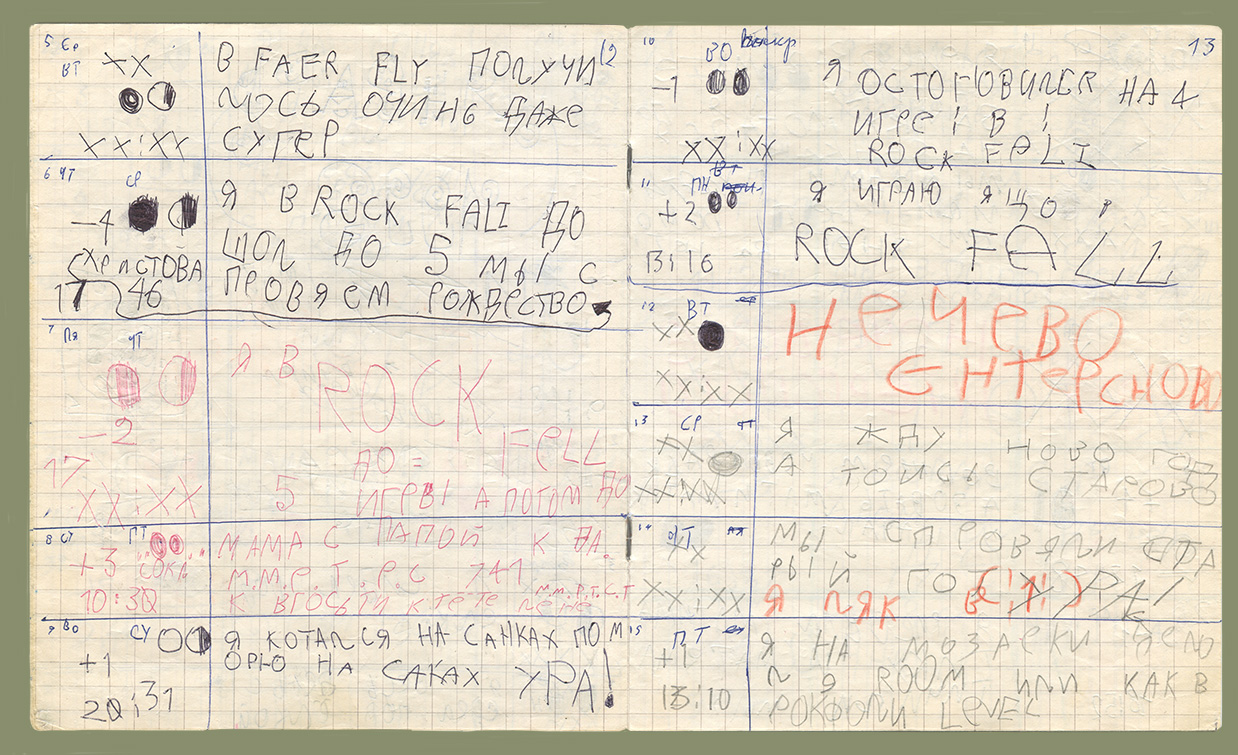 12
5 Ср
ВТ
XX
XX:XX
В FAER FLY ПОЛУЧИ
ЛОСЬ ОЧИНЬ ДАЖЕ
СУПЕР
6 ЧТ
СР
-4
ХРИСТОВА
17 46
Я В ROCK FALI ДО
ШОЛ ДО 5 МЫ С
ПРОВЯЕМ РОЖВЕСТВО
7 Пя
ЧТ
-2
17
XX:XX
Я В ROCK
FELL
ДО =
5 ИГРЫ А ПОТОМ ДО
8 СУ
ПТ
+3
10:30
МАМА С ПАПОЙ К ДА.
М.М.Р.Т.Р.С 741
М.М.Р.Т.С.Т
К ВГОСЬТИ К ТЁТЕ ЛЕНЕ
9 ВО
СУ
+1
20:31
Я КОТАЛСЯ НА САНКАХ ПО М
ОРЮ НА САКАХ УРА!
13
10
ВО
-1
XX:XX
Я ОСТОГОВИЛСЯ НА 4
ИГРЕ! В !
ROCK FALI
11
ПН
+2
13:16
Я ИГРАЮ ЯЩО
ROCK FALL
12
ВТ
XX
XX:XX
НЕЧЕВО
ЕНТЕРСНОВО
13
СР
XX
Я ЖДУ НОВО ГОД
А ТОИСЬ СТАРОВО
14
ЧТ
XX
XX:XX
МЫ СПРОВЯЛИ СТА
РЫЙ ГОТ УРА!
Я ЛЯК В (!1!)
15
ПТ
+1
13:10
Я НА МОЗАЕКИ ДЕЛО
Л Я ROOM ИЛИ КАК В
РОКФОЛИ LEVEL